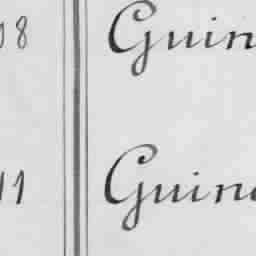 08 Guin
11 Guin